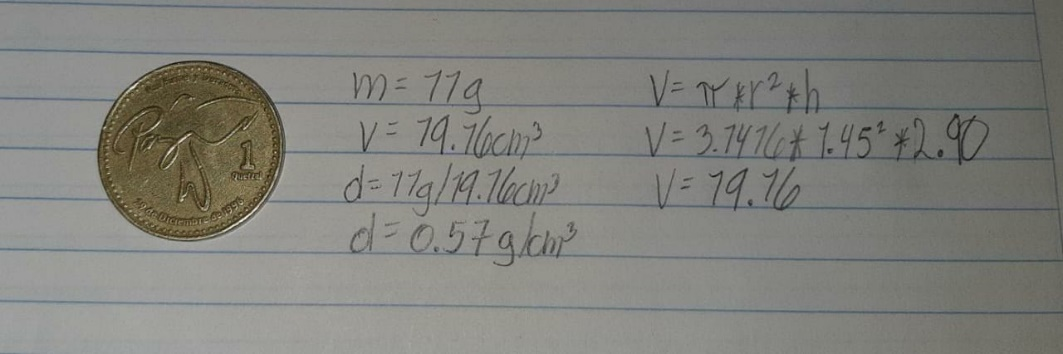 Paz Firme y Duradera
Paz
1
Quetzal
29 de Diciembre de 1996
m = 11g
V = 19.16cm³
d = 11g/19.16cm³
d = 0.57g/cm³
V = π*r²*h
V = 3.1416*1.45²*2.90
V = 19.16